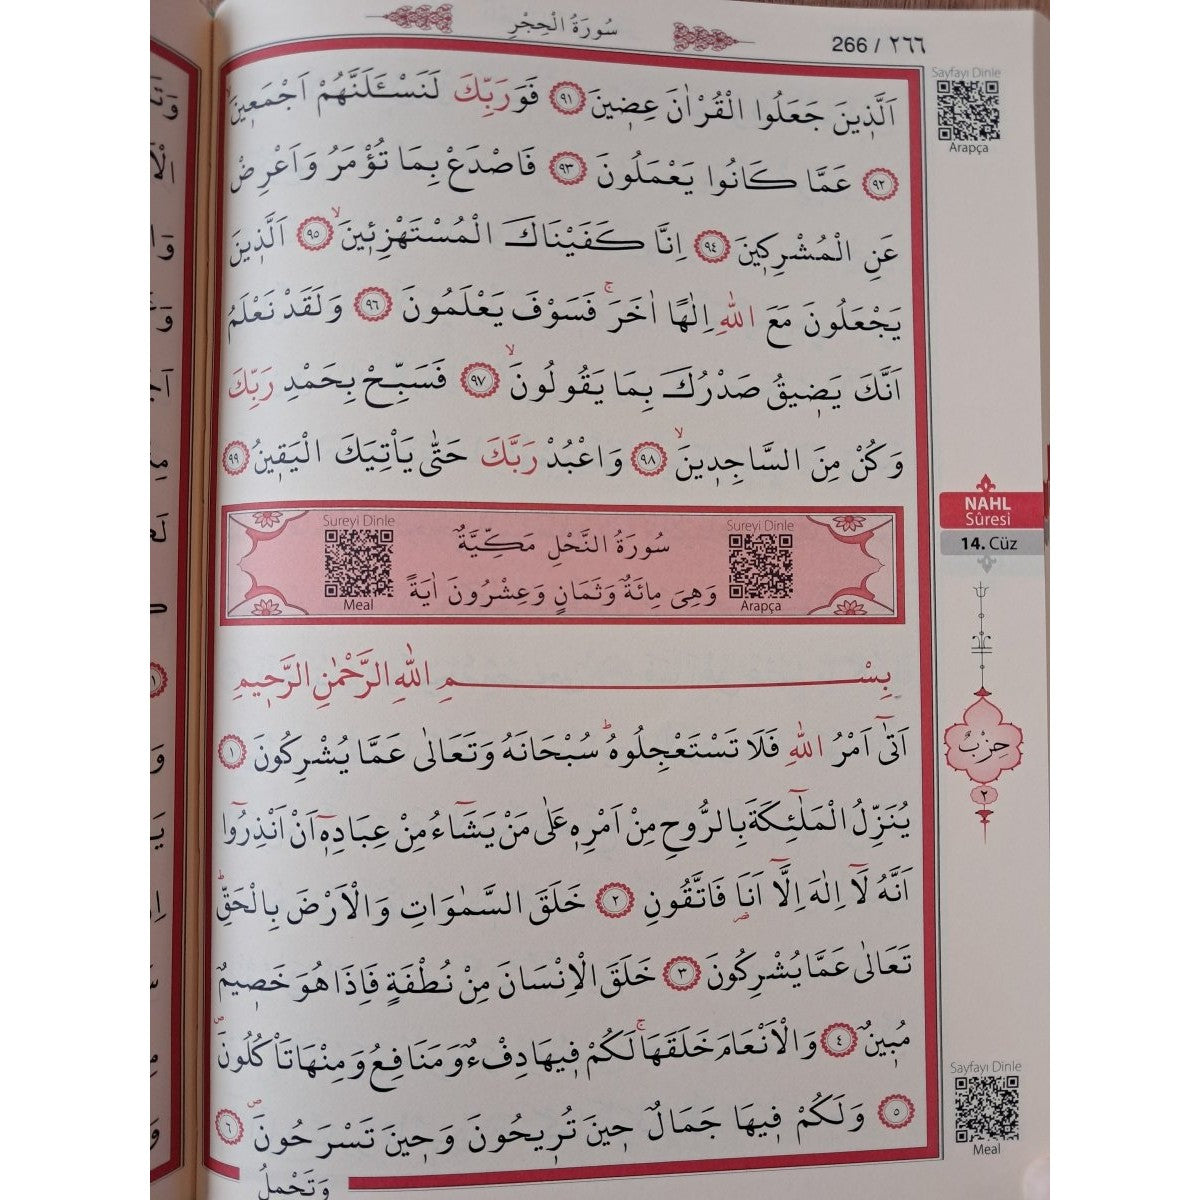 سُورَةُ الْحِجْرِ
266 / ٢٦٦
Sayfayı Dinle
Arapça
اَلَّذ۪ينَ جَعَلُوا الْقُرْاٰنَ عِض۪ينَ ﴿٩١﴾ فَوَرَبِّكَ لَنَسْـَٔلَنَّهُمْ اَجْمَع۪ينَۙ
﴿٩٢﴾ عَمَّا كَانُوا يَعْمَلُونَ ﴿٩٣﴾ فَاصْدَعْ بِمَا تُؤْمَرُ وَاَعْرِضْ
عَنِ الْمُشْرِك۪ينَ ﴿٩٤﴾ اِنَّا كَفَيْنَاكَ الْمُسْتَهْزِء۪ينَۙ ﴿٩٥﴾ اَلَّذ۪ينَ
يَجْعَلُونَ مَعَ اللّٰهِ اِلٰهًا اٰخَرَۚ فَسَوْفَ يَعْلَمُونَ ﴿٩٦﴾ وَلَقَدْ نَعْلَمُ
اَنَّكَ يَض۪يقُ صَدْرُكَ بِمَا يَقُولُونَۙ ﴿٩٧﴾ فَسَبِّحْ بِحَمْدِ رَبِّكَ
وَكُنْ مِنَ السَّاجِد۪ينَۙ ﴿٩٨﴾ وَاعْبُدْ رَبَّكَ حَتّٰى يَأْتِيَكَ الْيَق۪ينُ ﴿٩٩﴾
NAHL
Sûresi
14. Cüz
Sureyi Dinle
Meal
سُورَةُ النَّحْلِ مَكِّيَّةٌ
وَهِىَ مِائَةٌ وَثَمَانٍ وَعِشْرُونَ اٰيَةً
Sureyi Dinle
Arapça
بِسْمِ اللّٰهِ الرَّحْمٰنِ الرَّح۪يمِ
اَتٰٓى اَمْرُ اللّٰهِ فَلَا تَسْتَعْجِلُوهُۜ سُبْحَانَهُ وَتَعَالٰى عَمَّا يُشْرِكُونَ ﴿١﴾
حِزْبٌ
٢
يُنَزِّلُ الْمَلٰٓئِكَةَ بِالرُّوحِ مِنْ اَمْرِه۪ عَلٰى مَنْ يَشَٓاءُ مِنْ عِبَادِه۪ٓ اَنْ اَنْذِرُٓوا
اَنَّهُ لَٓا اِلٰهَ اِلَّٓا اَنَا۬ فَاتَّقُونِ ﴿٢﴾ خَلَقَ السَّمٰوَاتِ وَالْاَرْضَ بِالْحَقِّۜ
تَعَالٰى عَمَّا يُشْرِكُونَ ﴿٣﴾ خَلَقَ الْاِنْسَانَ مِنْ نُطْفَةٍ فَاِذَا هُوَ خَص۪يمٌ
مُب۪ينٌ ﴿٤﴾ وَالْاَنْعَامَ خَلَقَهَاۚ لَكُمْ ف۪يهَا دِفْءٌ وَمَنَافِعُ وَمِنْهَا تَأْكُلُونَۖ
﴿٥﴾ وَلَكُمْ ف۪يهَا جَمَالٌ ح۪ينَ تُر۪يحُونَ وَح۪ينَ تَسْرَحُونَۖ ﴿٦﴾
Sayfayı Dinle
Meal
وَتَحْمِلُ